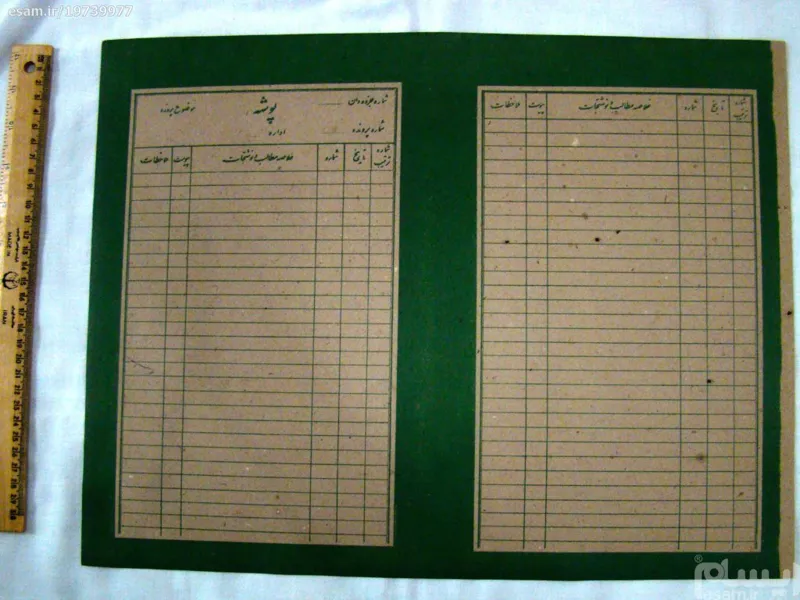 esam.ir/19739977
شماره جزوه‌دان
پوشه
موضوع پرونده
شماره پرونده
اداره
شماره ترتیب
تاریخ
شماره
خلاصه مطالب و نوشتجات
پیوست
ملاحظات
شماره ترتیب
تاریخ
شماره
خلاصه مطالب و نوشتجات
پیوست
ملاحظات
MADE IN
IRAN
ایسام
esam.ir